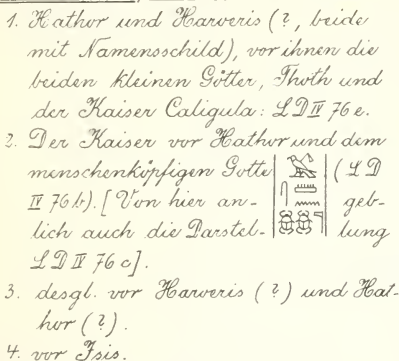 1. Hathor und Harveris (?, beide
mit Namensschild), vor ihnen die
beiden kleinen Götter, Thoth und
der Kaiser Caligula: L D IV 76 e.
2. Der Kaiser vor Hathor und dem
menschenköpfigen Gotte (L D
IV 76 b). [Von hier an- geb-
lich auch die Darstel- lung
L D IV 76 c].
3. desgl. vor Harveris (?) und Hat-
hor (?).
4. vor Isis.